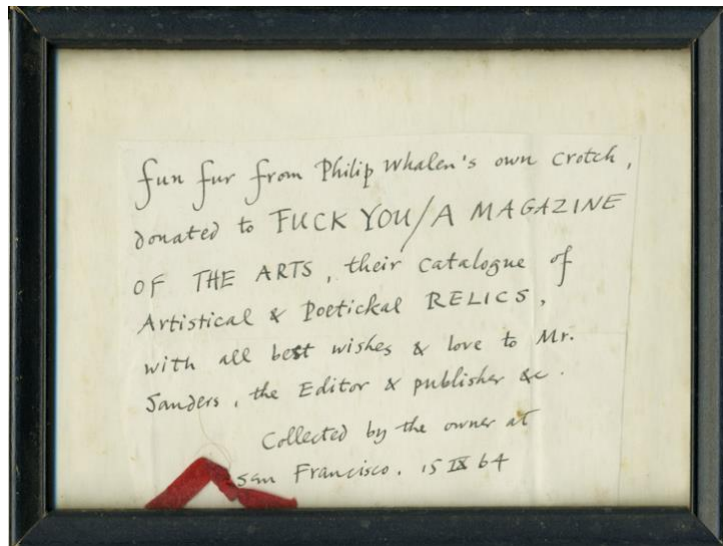 fun fur from Philip Whalen's own crotch,
donated to FUCK YOU/A MAGAZINE
OF THE ARTS, their catalogue of
Artistical & Poetickal RELICS,
with all best wishes & love to Mr.
Sanders, the Editor & publisher &c.
Collected by the owner at
San Francisco. 15 IX 64